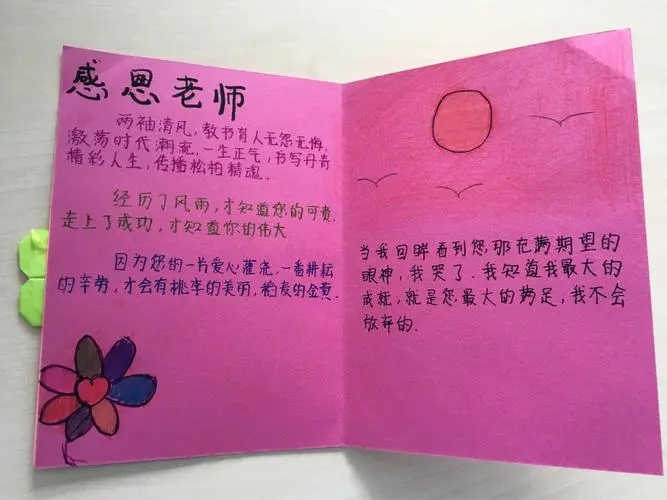 感恩老师
两袖清风，教书育人无怨无悔.
激荡时代潮流.一生正气，书写丹青
精彩人生，传播松柏精魂.
经历了风雨，才知道您的可贵.
走上了成功，才知道你的伟大.
因为您的一片爱心灌浇，一番耕耘
的辛劳，才会有桃李的美丽，稻麦的金黄.
当我回眸看到您，那充满期望的
眼神，我哭了.我知道我最大的
成就，就是您最大的满足，我不会
放弃的.